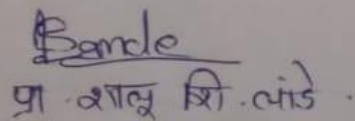 Bande
प्रा. शालू शि. लांडे.